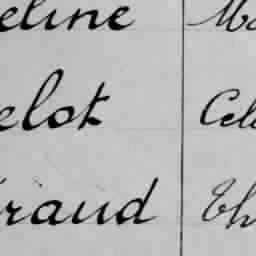 eline Ma
elot Cele
raud Th